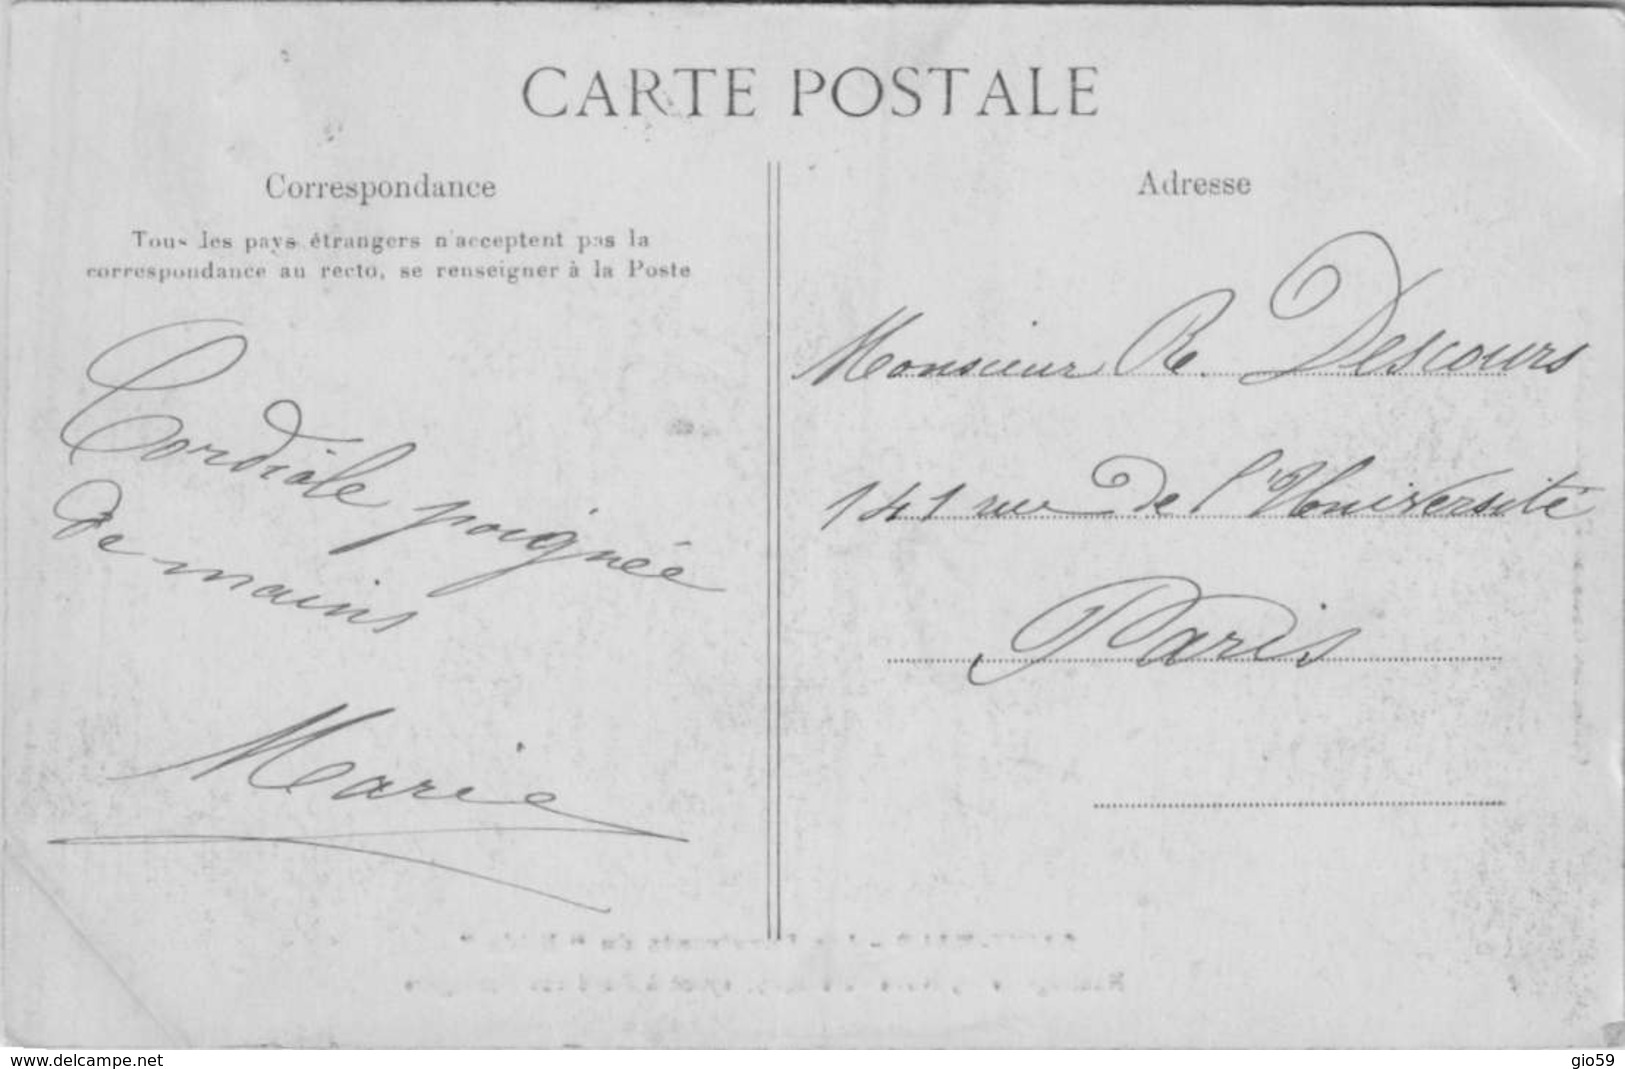 CARTE POSTALE
Correspondance
Tous les pays étrangers n'acceptent pas la
correspondance au recto, se renseigner à la Poste
Cordiale poignée
de mains
Marie
Adresse
Monsieur R. Descours
141 rue de l'Université
Paris
www.delcampe.net
gio59